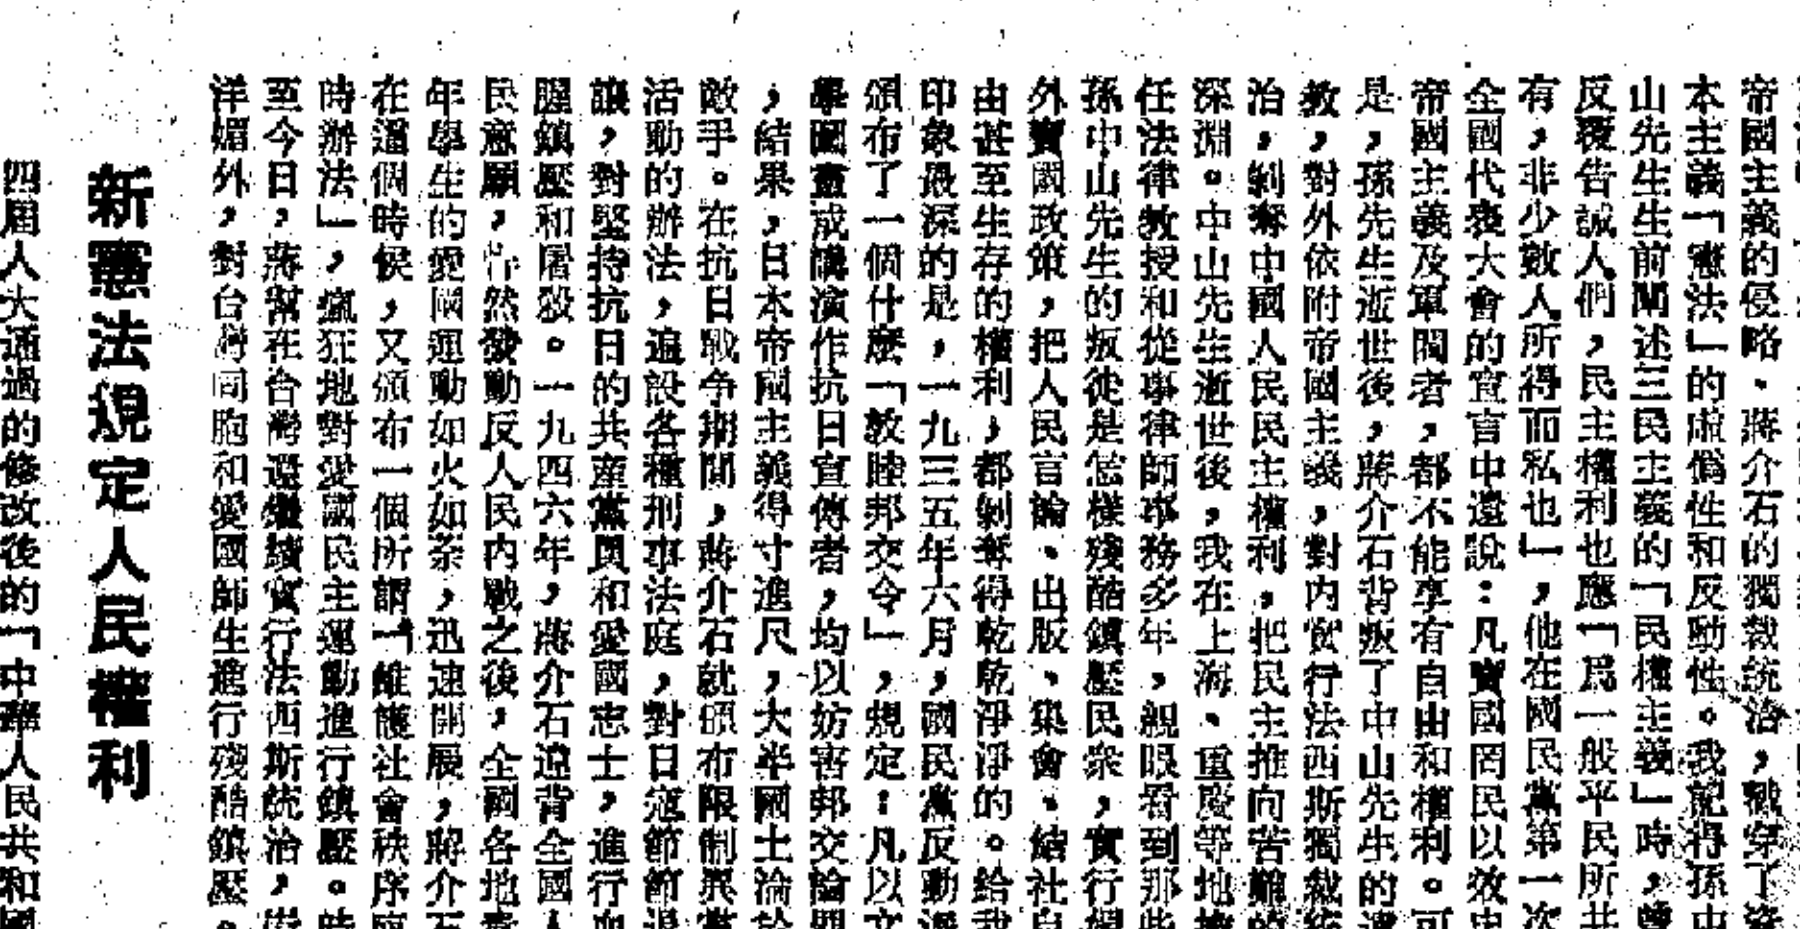 帝國主義的侵略、蔣介石的獨裁統治，戳穿了
本主義「憲法」的虛僞性和反動性。我記得孫中
山先生生前闡述三民主義的「民權主義」時，曾
反覆告誡人們，民主權利也應「爲一般平民所共
有，非少數人所得而私也」，他在國民黨第一次
全國代表大會的宣言中還說：凡賣國罔民以效忠
帝國主義及軍閥者，都不能享有自由和權利。可
是，孫先生逝世後，蔣介石背叛了中山先生的遺
教，對外依附帝國主義，對内實行法西斯獨裁統
治，剝奪中國人民民主權利，把民主推向苦難的
深淵。中山先生逝世後，我在上海、重慶等地擔
任法律教授和從事律師事務多年，親眼看到那些
孫中山先生的叛徒是怎樣殘酷鎮壓民衆，實行媚
外賣國政策，把人民言論、出版、集會、結社自
由甚至生存的權利，都剝奪得乾乾淨淨的。給我
印象最深的是，一九三五年六月，國民黨反動派
頒布了一個什麼「敦睦邦交令」，規定：凡以文
學圖畫或講演作抗日宣傳者，均以妨害邦交論罪
，結果，日本帝國主義得寸進尺，大半國土淪於
敵手。在抗日戰争期間，蔣介石就頒布限制異黨
活動的辦法，遍設各種刑事法庭，對日寇節節退
讓，對堅持抗日的共産黨員和愛國志士，進行血
腥鎮壓和屠殺。一九四六年，蔣介石違背全國人
民意願，悍然發動反人民内戰之後，全國各地青
年學生的愛國運動如火如荼，迅速開展，蔣介石
在這個時候，又頒布一個所謂「維護社會秩序
時辦法」，瘋狂地對愛國民主運動進行鎮壓。時
至今日，蔣幫在台灣還繼續實行法西斯統治，崇
洋媚外，對台灣同胞和愛國師生進行殘酷鎮壓。
新憲法規定人民權利
四屆人大通過的修改後的「中華人民共和國